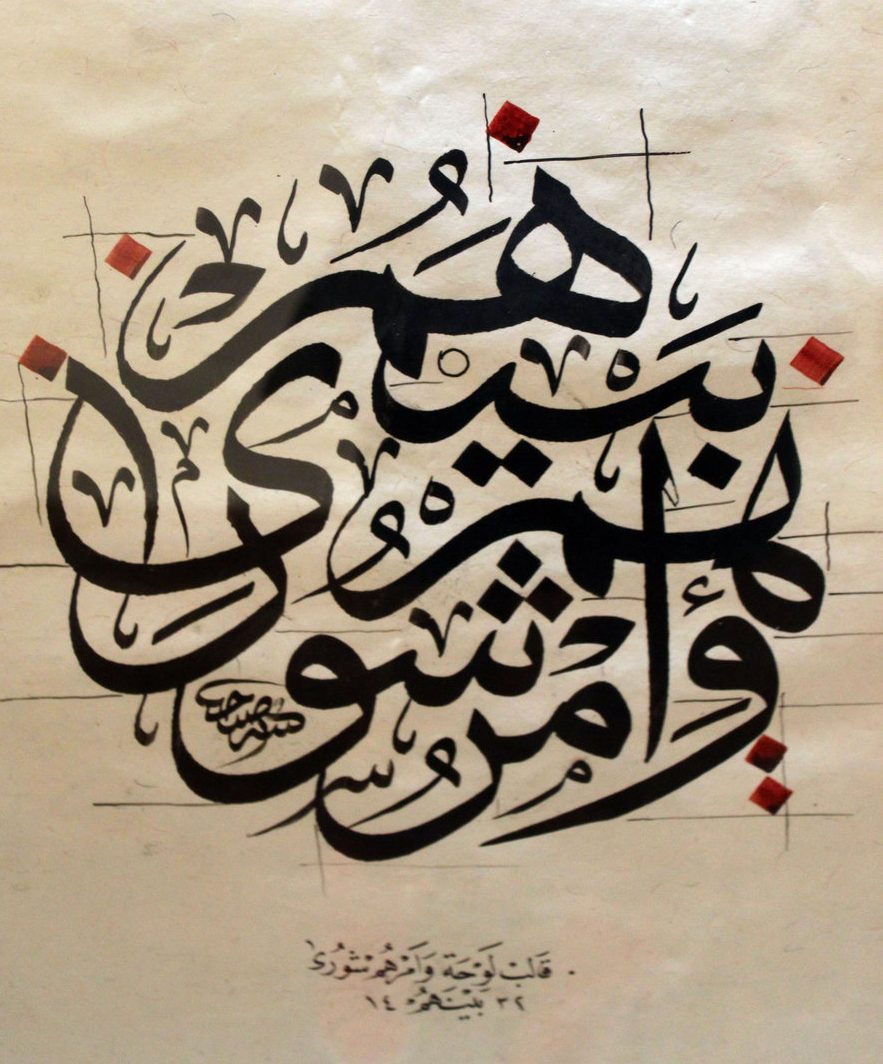 وَأَمْرُهُمْ شُورَى بَيْنَهُمْ
قَالَبْ لَوْحَة وَأَمْرُهُمْ شُورَى
٣٢ بَيْنَهُمْ ١٤